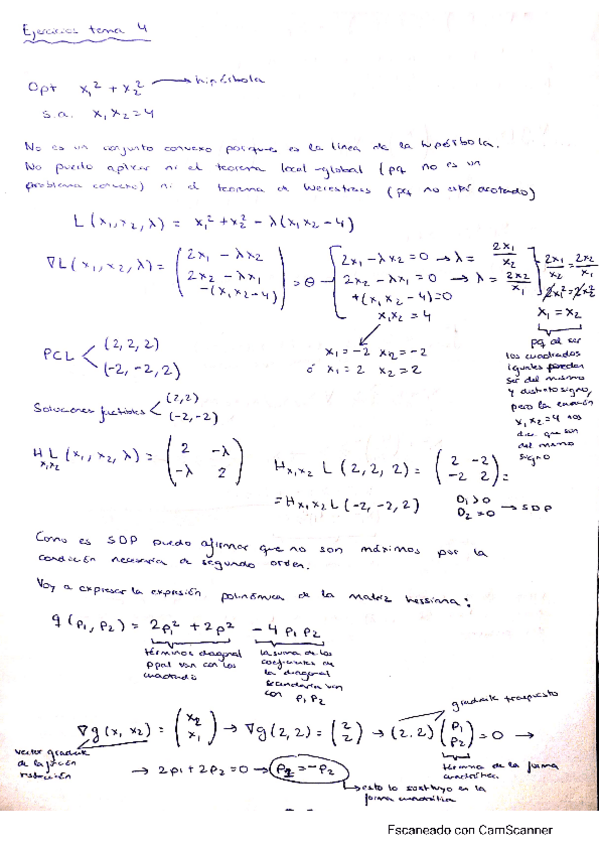 Ejercicios tema 4
Opt x₁² + x₂² → hipérbola
s.a. x₁x₂ = 4
No es un conjunto convexo porque es la línea de la hipérbola.
No puedo aplicar ni el teorema local-global (pq no es un
problema convexo) ni el teorema de Weierstrass (pq no está acotado)
L(x₁, x₂, λ) = x₁² + x₂² - λ(x₁x₂ - 4)
∇L(x₁, x₂, λ) = (2x₁ - λx₂ 2x₂ - λx₁ -(x₁x₂ - 4)) = θ
2x₁ - λx₂ = 0 → λ = 2x₁/x₂
2x₂ - λx₁ = 0 → λ = 2x₂/x₁
+(x₁x₂ - 4) = 0
x₁x₂ = 4
2x₁/x₂ = 2x₂/x₁
2x₁² = 2x₂²
x₁ = x₂
pq al ser
los cuadrados
iguales pueden
ser del mismo
y distinto signo,
pero la
x₁x₂ = 4 nos
dice que son
del mismo
signo
x₁ = -2 x₂ = -2
ó x₁ = 2 x₂ = 2
PCL (2, 2, 2)
(-2, -2, 2)
Soluciones factibles (2, 2)
(-2, -2)
H L x₁x₂ (x₁, x₂, λ) = (2 -λ -λ 2)
Hx₁x₂ L(2, 2, 2) = (2 -2 -2 2) =
= Hx₁x₂ L(-2, -2, 2) D₁ > 0 D₂ = 0 → SDP
Como es SDP puedo afirmar que no son máximos por la
condición necesaria de segundo orden.
Voy a expresar la expresión polinómica de la matriz hessiana:
q(p₁, p₂) = 2p₁² + 2p² - 4p₁p₂
términos diagonal
ppal van con los
cuadrado
la suma de los
coeficientes de
la diagonal
secundaria van
con p₁p₂
gradiente traspuesto
∇g(x, x₂) = (x₂ x₁) → ∇g(2, 2) = (2 2) → (2.2)(p₁ p₂) = 0 →
vector gradiente
de la función
restricción
términos de la forma
cuadrática.
→ 2p₁ + 2p₂ = 0 → p₁ = -p₂
esto lo sustituyo en la
forma cuadrática
Escaneado con CamScanner